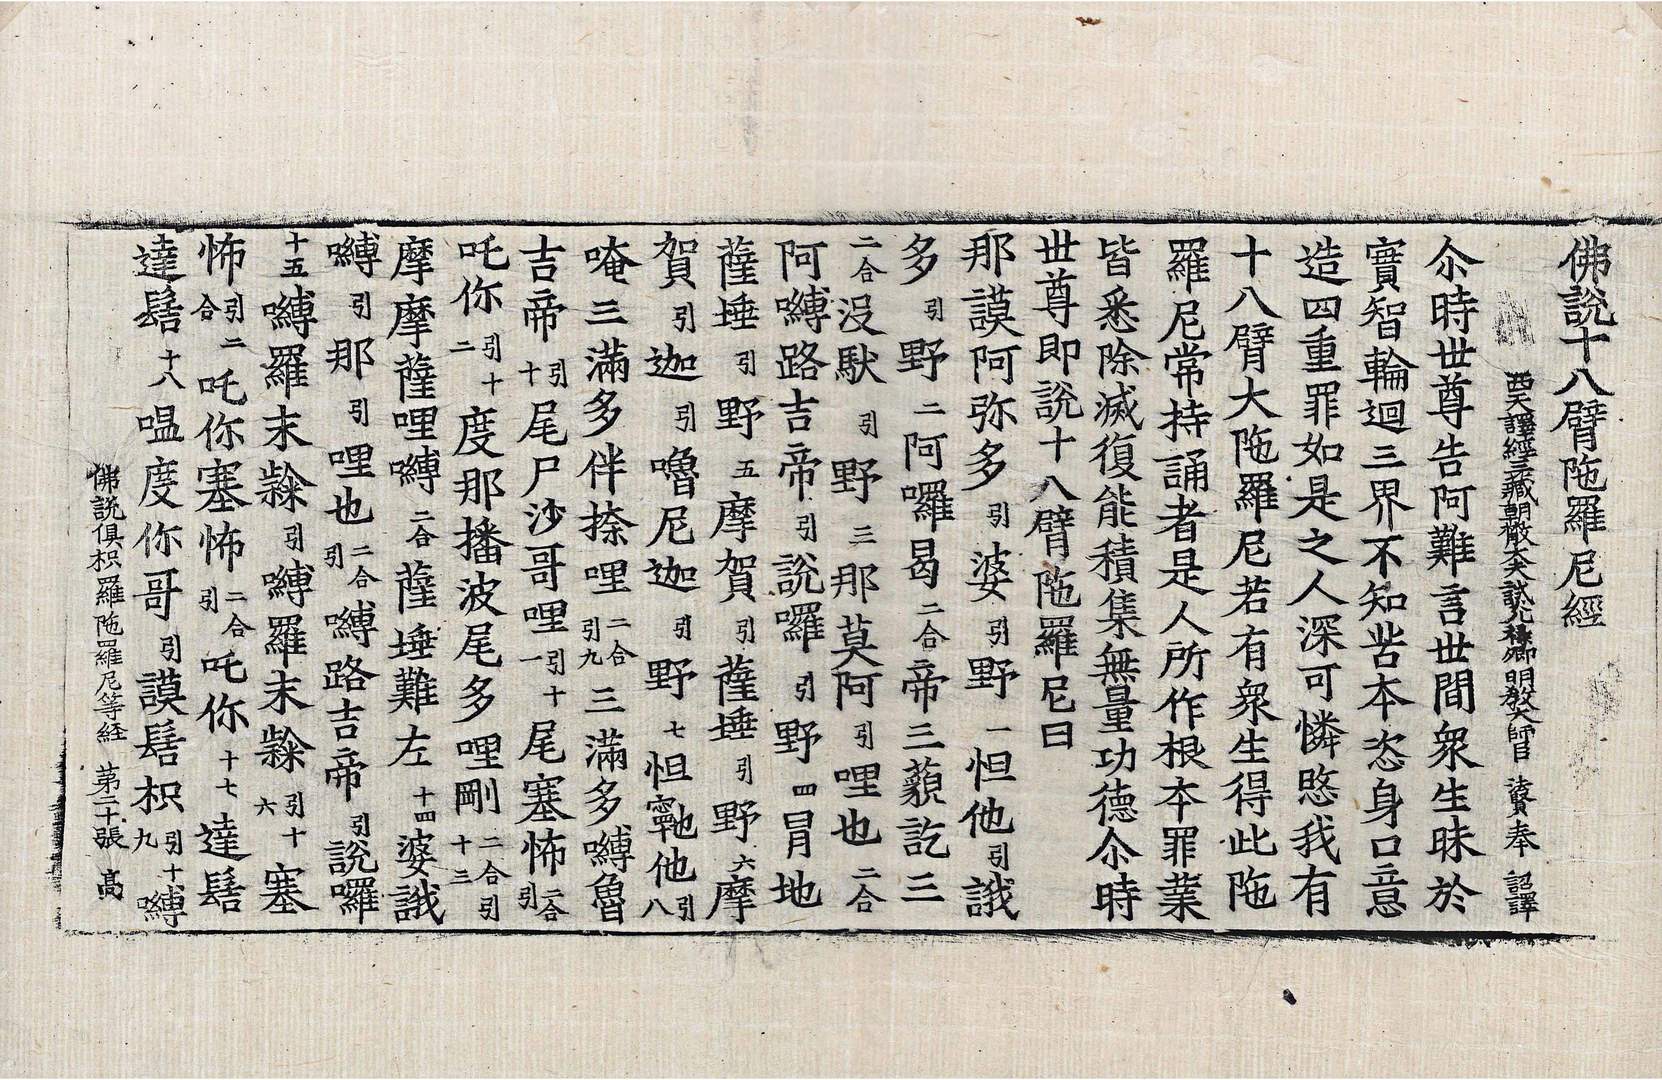 佛說十八臂陁羅尼經
西天譯經三藏朝散大夫試光祿卿明教大師臣 法賢奉 詔譯
尒時世尊告阿難言世間眾生昧於
實智輪迴三界不知苦本恣身口意
造四重罪如是之人深可憐愍我有
十八臂大陁羅尼若有眾生得此陁
羅尼常持誦者是人所作根本罪業
皆悉除滅復能積集無量功德尒時
世尊即說十八臂陁羅尼曰
那謨阿弥多引婆引野一怛他引誐
多引野二阿囉曷二合帝三藐訖三
二合沒馱引野三那莫阿引哩也二合
阿嚩路吉帝引說囉引野四冐地
薩埵引野五摩賀引薩埵引野六摩
賀引迦引嚕尼迦引野七怛寧他他引八
唵三滿多伴捺哩二合引九三滿多嚩魯
吉帝引十尾尸沙哥哩引十一尾塞怖二合引
吒你引十二度那播波尾多哩剛二合引十三
摩摩薩哩嚩二合薩埵難左十四婆誐
嚩引那引哩也二合引嚩路吉帝引說囉
十五嚩羅末𪗨引嚩羅末𪗨引十六塞
怖引二合吒你塞怖二合引吒你十七達髻
達髻十八嗢度你哥引謨髻枳引十九嚩
佛說俱枳羅陁羅尼等経 第二十張 高